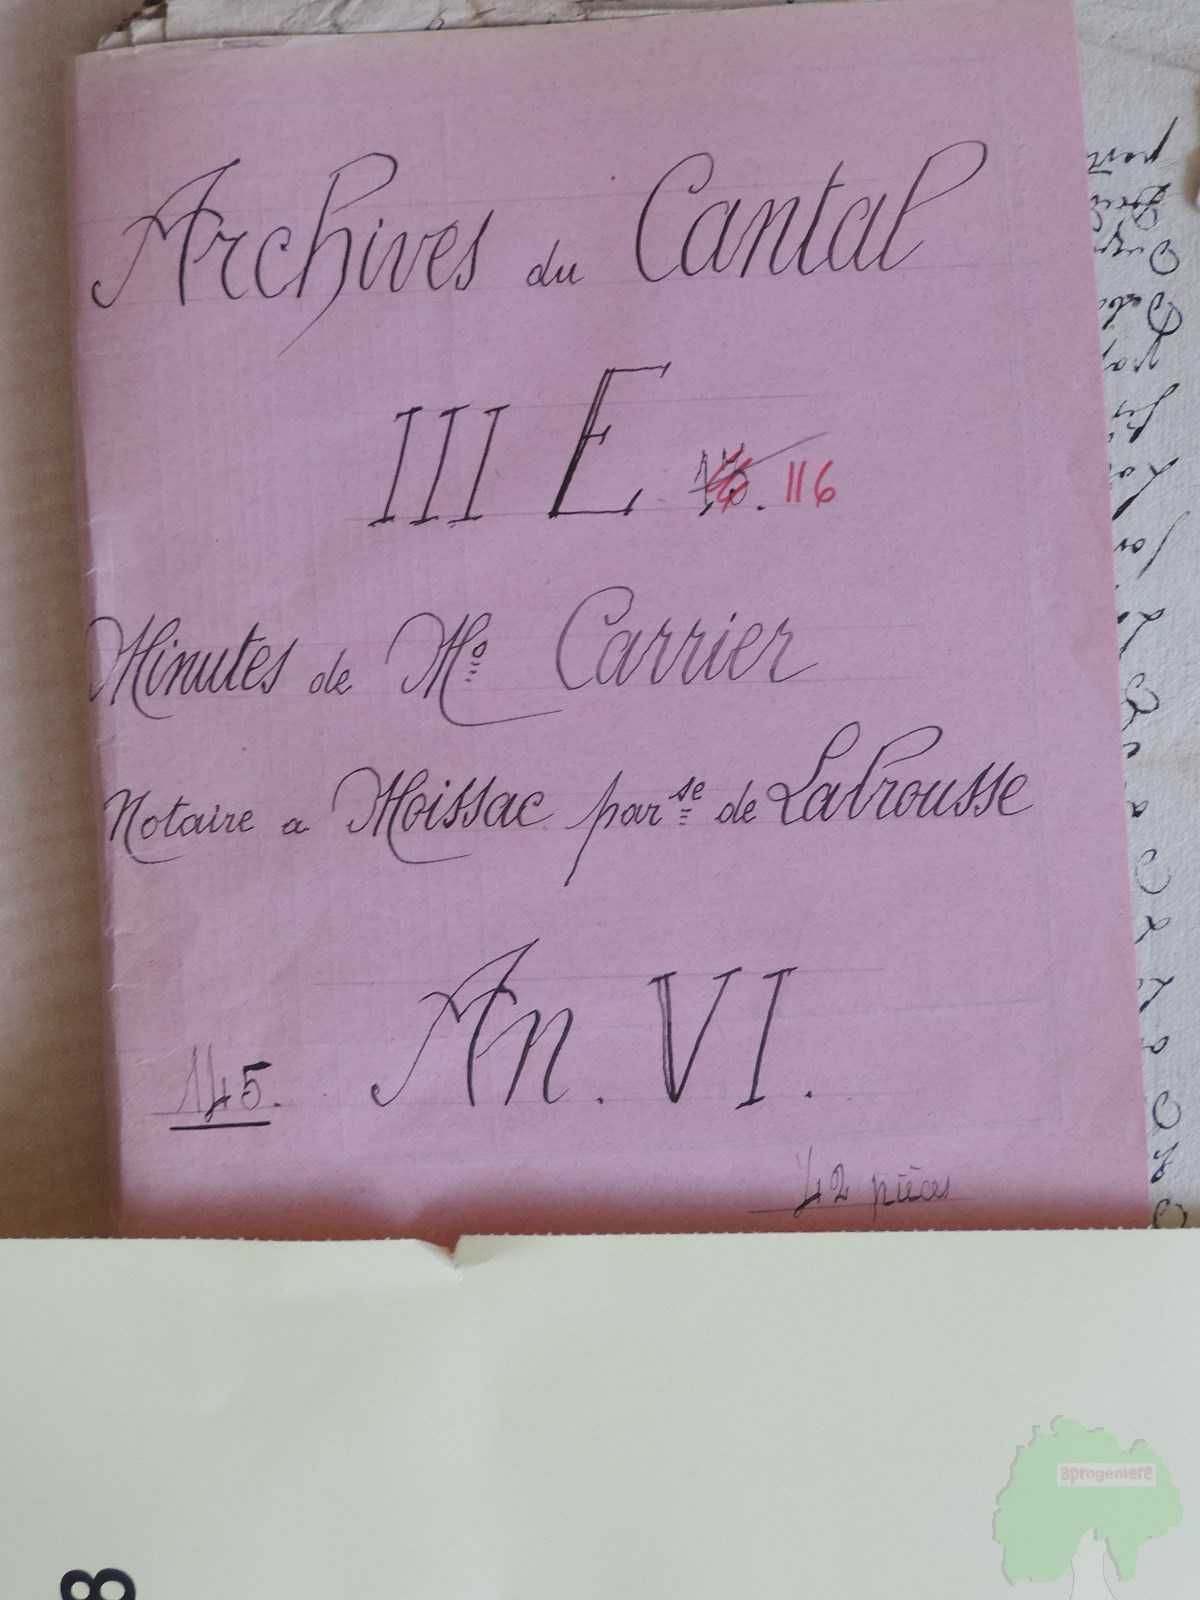 Archives du Cantal
III E 116
Minutes de Me Carrier
Notaire a Moissac parse de Labrousse
An. VI.
145.
42 pièces
aprogemere
8